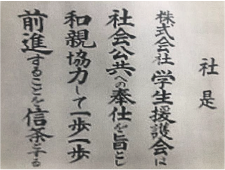 社是
株式会社学生援護会は
社会公共への奉仕を旨とし
和親協力して一歩一歩
前進することを信条とする